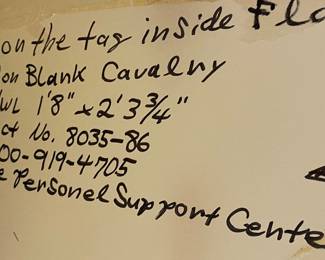 on the tag inside Fla
on Blank Cavalry
WL 1'8" x 2' 3 3/4"
ct No. 8035-86
00-919-4705
e Personel Support Cente